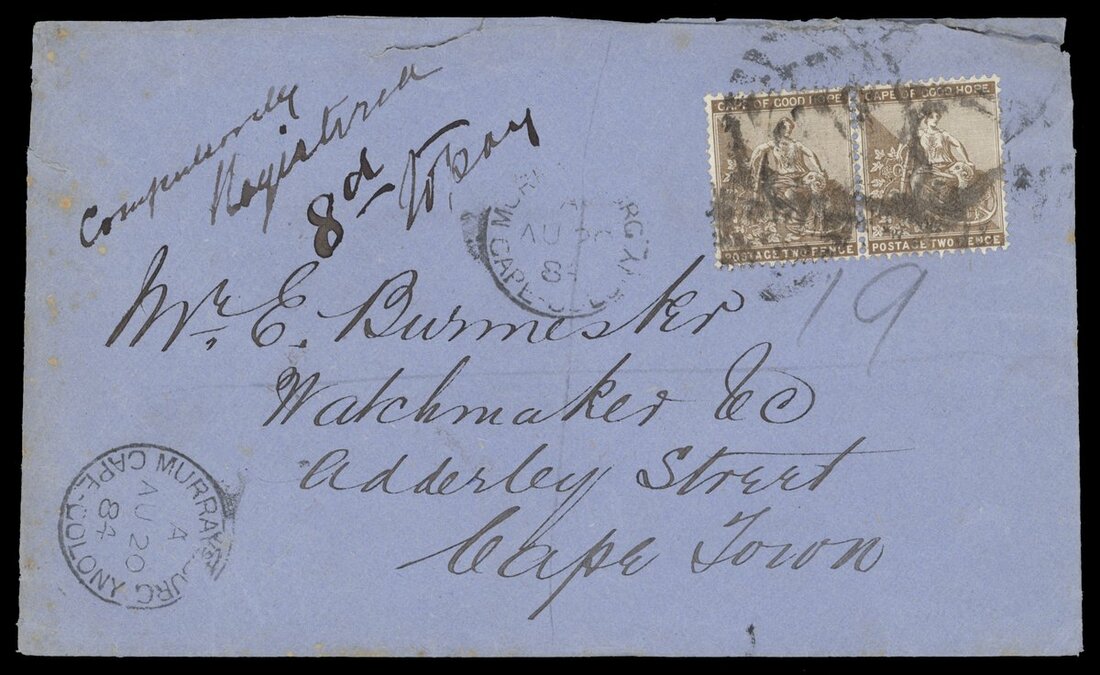 Compulsorily
Registered
8d to pay
CAPE OF GOOD HOPE
POSTAGE TWO PENCE
CAPE OF GOOD HOPE
POSTAGE TWO PENCE
AU
8
CAPE-
19
Mr. E. Burmester
Watchmaker &c
Adderley Street
Cape Town
MURRAYSBURG
CAPE-COLONY
A
AU 20
84